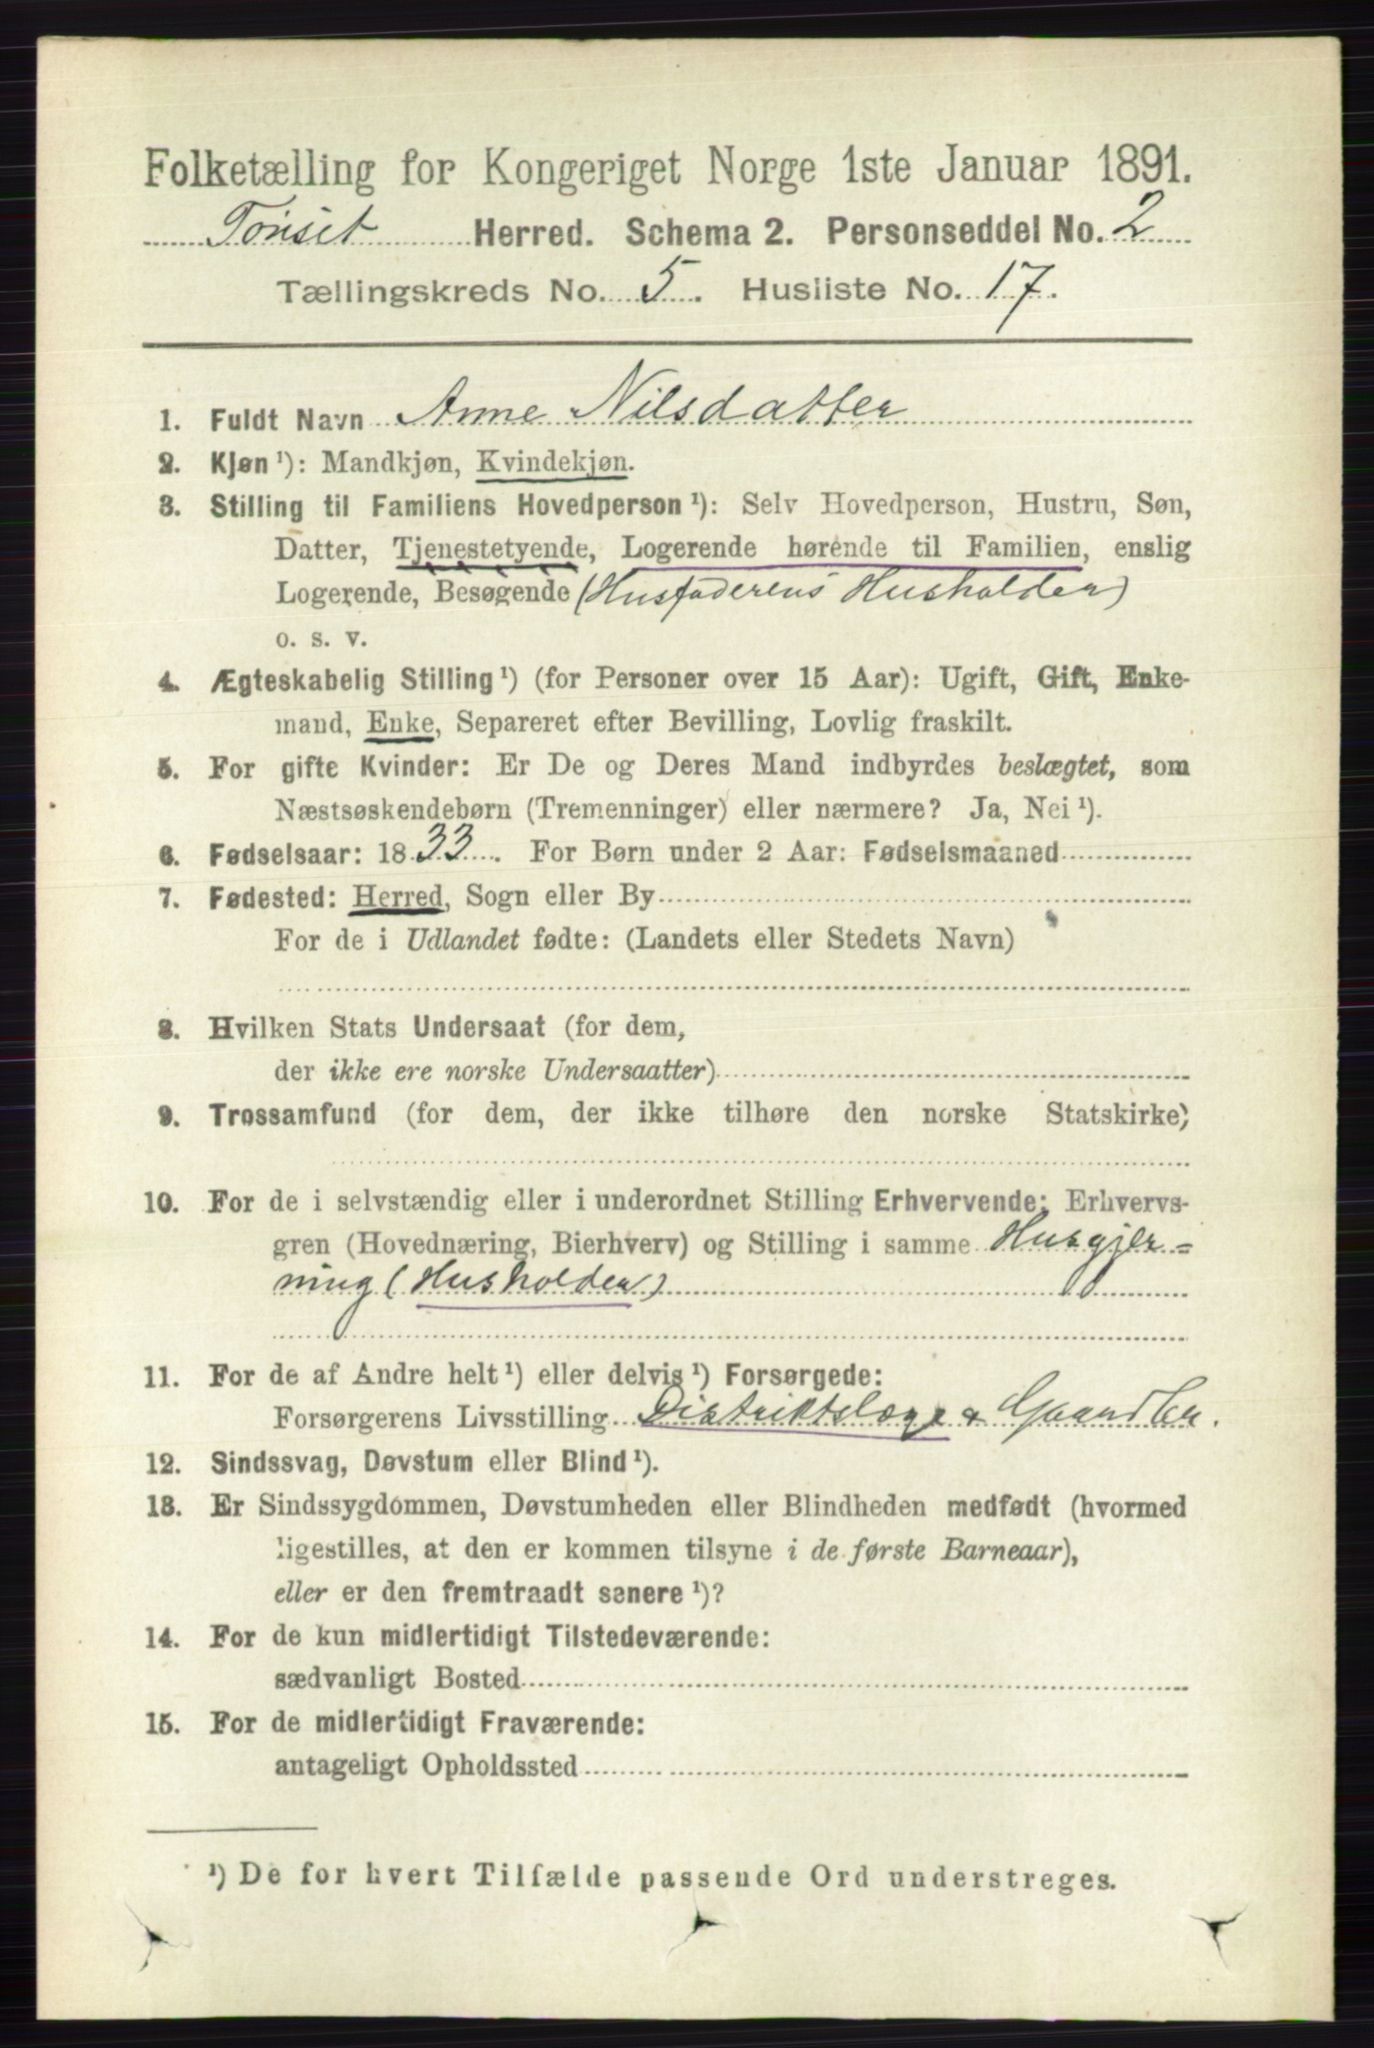 Folketælling for Kongeriget Norge 1ste Januar 1891.
Tønset Herred. Schema 2. Personseddel No. 2
Tællingskreds No. 5. Husliste No. 17.
1. Fuldt Navn Anne Nilsdatter
2. Kjøn ¹): Mandkjøn, Kvindekjøn.
3. Stilling til Familiens Hovedperson ¹): Selv Hovedperson, Hustru, Søn,
Datter, Tjenestetyende, Logerende hørende til Familien, enslig
Logerende, Besøgende (Husfaderens Husholder)
o. s. v.
4. Ægteskabelig Stilling ¹) (for Personer over 15 Aar): Ugift, Gift, Enke-
mand, Enke, Separeret efter Bevilling, Lovlig fraskilt.
5. For gifte Kvinder: Er De og Deres Mand indbyrdes beslægtet, som
Næstsøskendebørn (Tremenninger) eller nærmere? Ja, Nei ¹).
6. Fødselsaar: 1833. For Børn under 2 Aar: Fødselsmaaned
7. Fødested: Herred, Sogn eller By
For de i Udlandet fødte: (Landets eller Stedets Navn)
8. Hvilken Stats Undersaat (for dem,
der ikke ere norske Undersaatter)
9. Trossamfund (for dem, der ikke tilhøre den norske Statskirke)
10. For de i selvstændig eller i underordnet Stilling Erhvervende: Erhvervs-
gren (Hovednæring, Bierhverv) og Stilling i samme Husgjer-
ning (Husholder)
11. For de af Andre helt ¹) eller delvis ¹) Forsørgede:
Forsørgerens Livsstilling Distriktslæge & Gaardbr.
12. Sindssvag, Døvstum eller Blind ¹).
13. Er Sindssygdommen, Døvstumheden eller Blindheden medfødt (hvormed
ligestilles, at den er kommen tilsyne i de første Barneaar),
eller er den fremtraadt senere ¹)?
14. For de kun midlertidigt Tilstedeværende:
sædvanligt Bosted
15. For de midlertidigt Fraværende:
antageligt Opholdssted
¹) De for hvert Tilfælde passende Ord understreges.